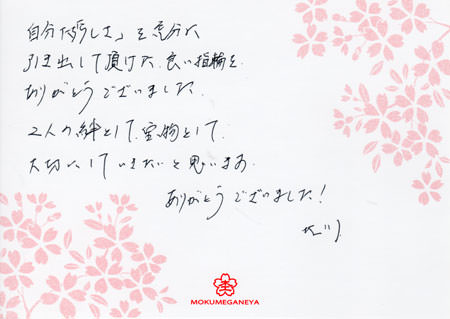 自分たちらしさ」を充分に
引き出して頂けた、良い指輪を
ありがとうございました。
2人の絆として、宝物として、
大切にしていきたいと思います。
ありがとうございました!
MOKUMEGANEYA